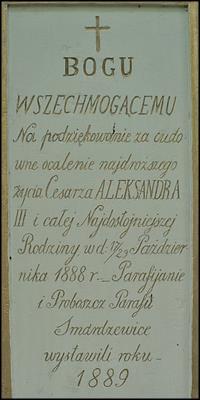 BOGU
WSZECHMOGĄCEMU
Na podziękowanie za cudo
wne ocalenie najdroższego
życia Cesarza ALEKSANDRA
III i całej Najdostojniejszej
Rodziny w d. 17/29 Paździer
nika 1888 r. _ Parafijanie
i Proboszcz Parafii
Smardzewice
wystawili roku _
1889